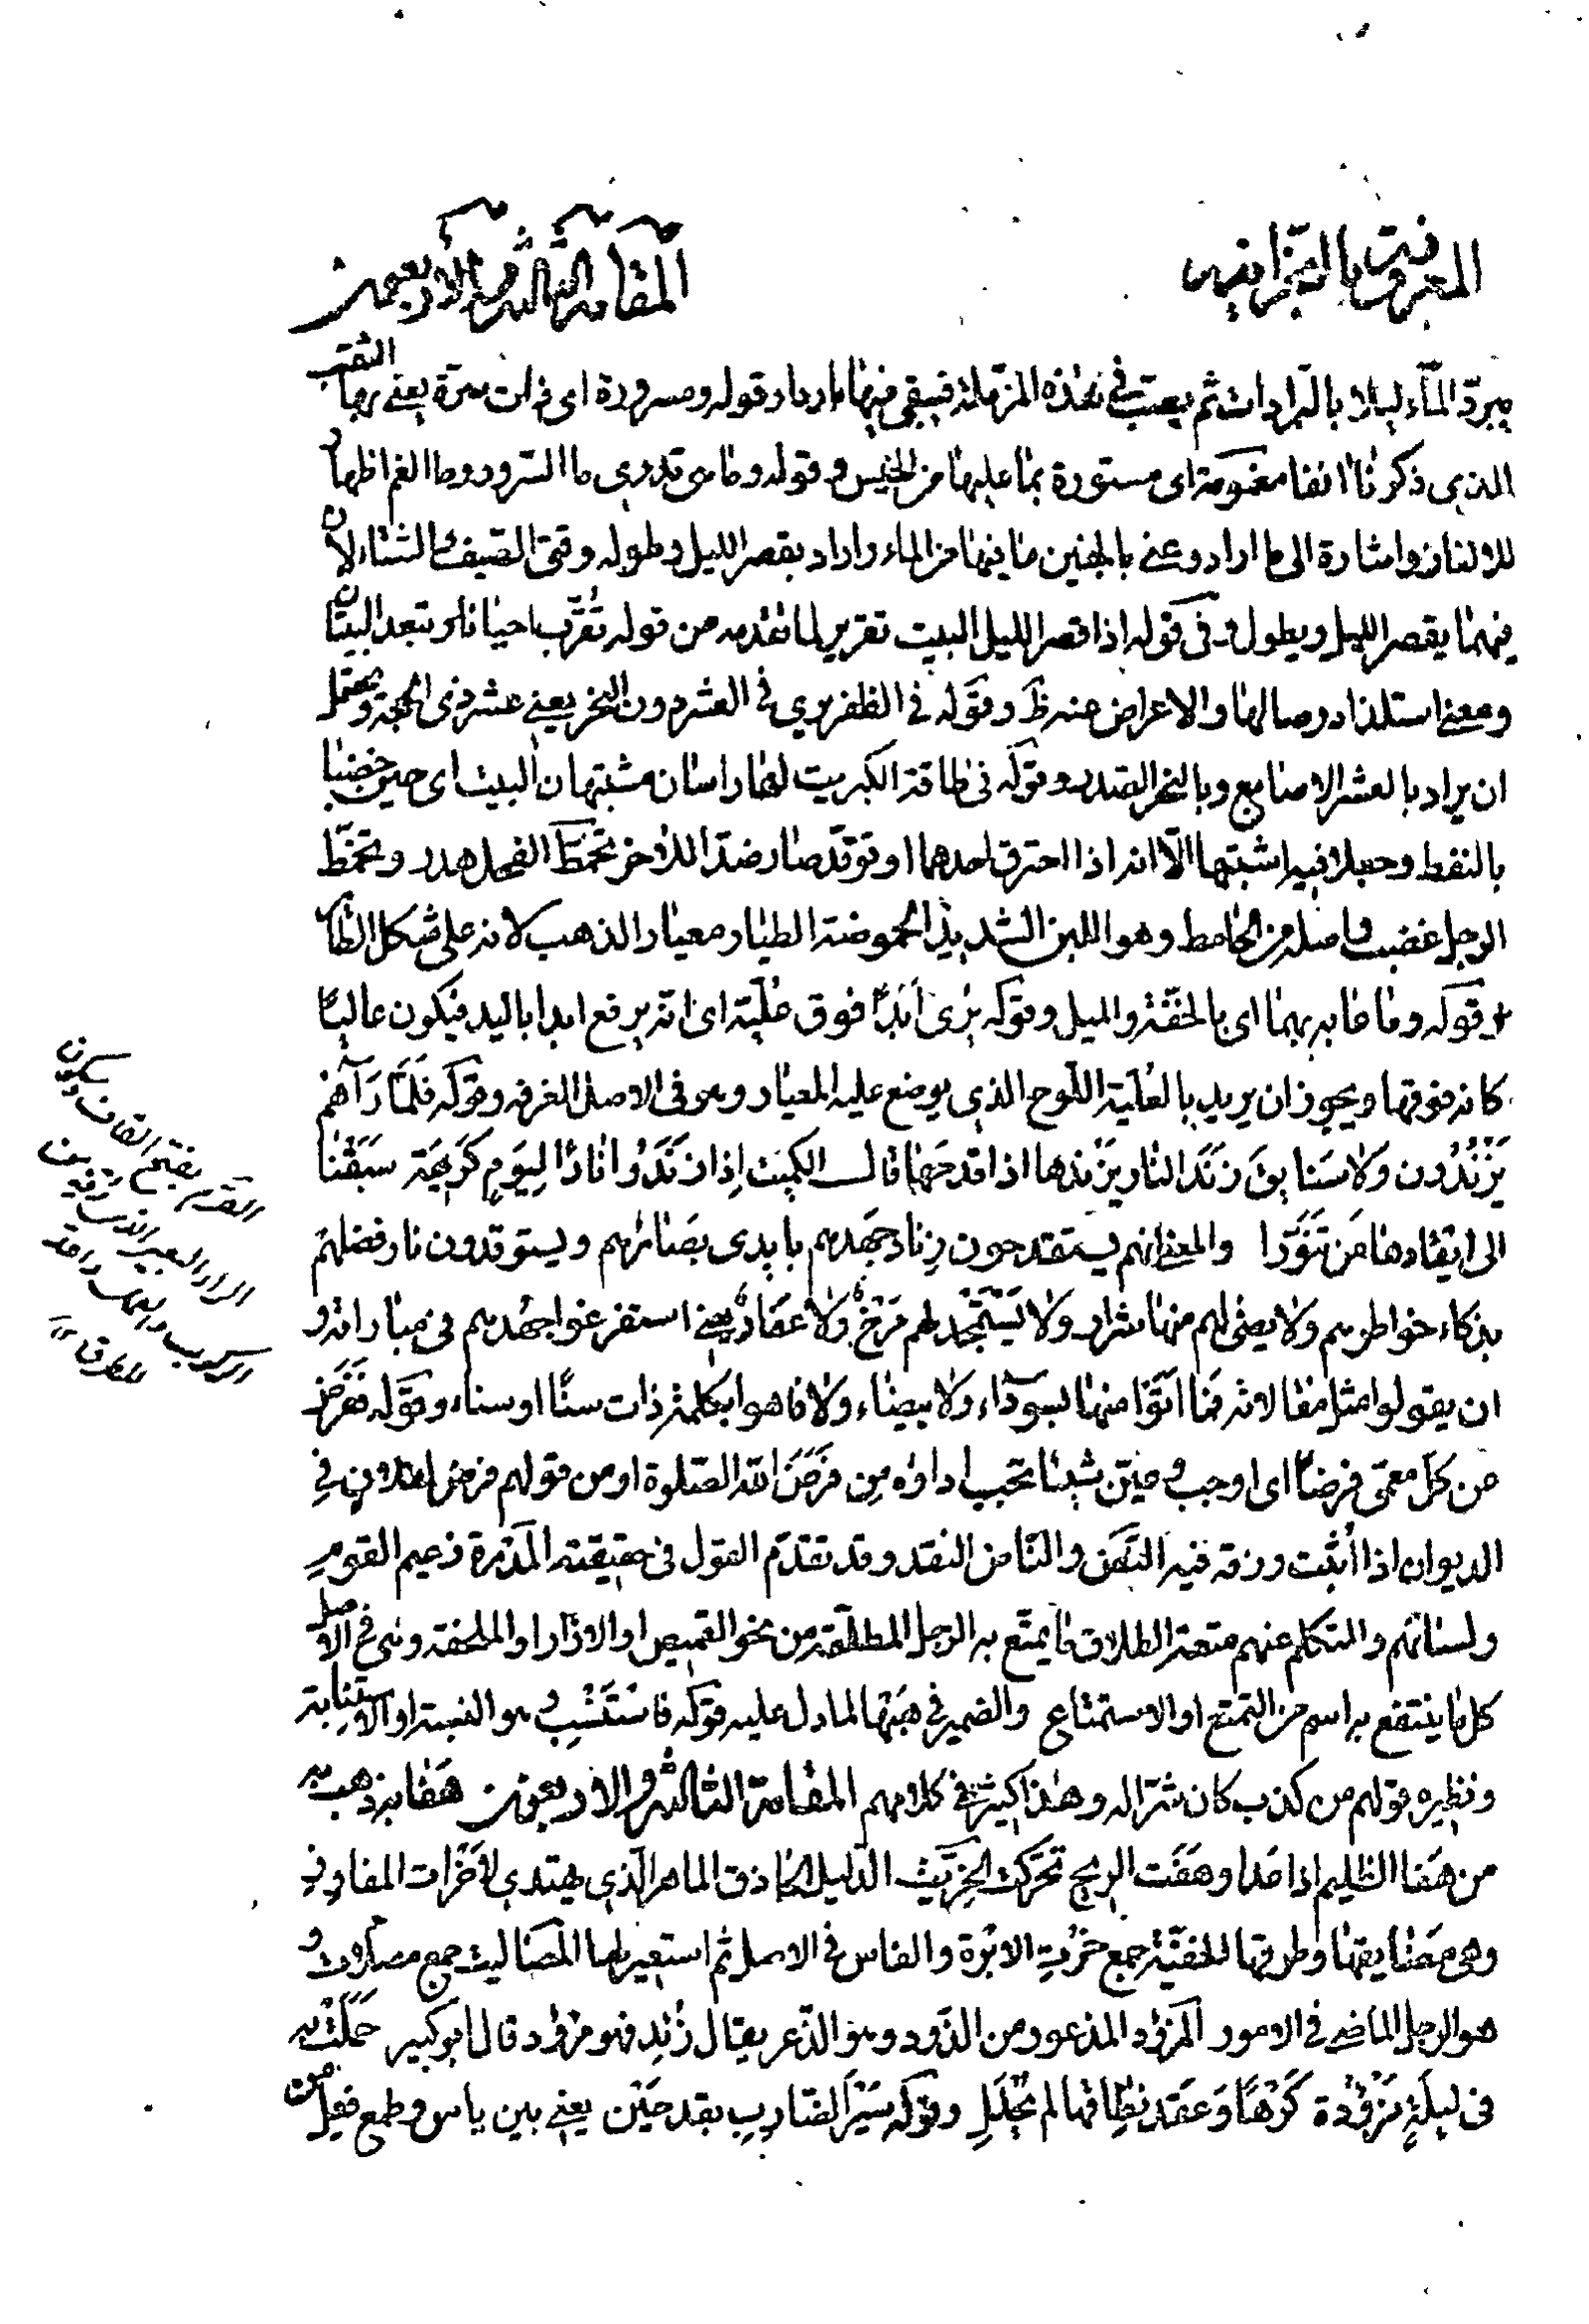 المعروفة بالنجرانية
المقامة الثالثة والاربعون
يبرد الماء ليلا بالبرادات ثم يصب في هذه المزملة فيبقى فيها باردا وقوله ومسرورة اى ذات سرة يعنى بها الثقب
الذى ذكرناه انفا مغمومة اى مستورة بما عليها من الخيش وقوله وما هى تدرى ما السرور وما الغم اظهار
للالغاز واشارة الى ما اراد وعنى بالجنين ما فيها من الماء واراد بقصر الليل وطوله وقتى الصيف والشتاء لان
فيهما يقصر الليل ويطول وفى قوله اذا قصر الليل البيت تقرير لما تقدمه من قوله تقرب احيانا وتبعد البيتان
ومعنى استلذاذ وصالها والاعراض عنه ظ وقوله فى الظفر يرى فى العشر دون النحر يعنى عشر ذى الحجة ويحتمل
ان يراد بالعشر الاصابع وبالنحر الصدر وقوله فى طاقة الكبريت لها راسان مشتبهان البيت اى حين خضبا
بالنفط وجعلا فيه اشتبها الا انه اذا احترق احدهما او توقد صار ضد اللاخر تخمط الفحل هدر وتخمط
الرجل غضب واصله من الخامط وهو اللبن الشديد الحموضة الطيار معيار الذهب لانه على شكل الطائر
وقوله وما عابه بهما اى بالخفة والميل وقوله يرى ابدا فوق علية اى انه يرفع ابدا باليد فيكون عاليا
كانه فوقها ويجوز ان يريد بالعلية اللوح الذى يوضع عليه المعيار وهو فى الاصل الغرفة وقوله فلما رآهم
يزندون ولا سنا يق زند النار يزندها اذا قدحها قال الكميت اذا زندوا نارا ليوم كريهة سبقنا
الى ايقادها من تنورا والمعنى انهم يستقدحون زناد جهدهم بايدى بصائرهم ويستوقدون نار فضلهم
بذكاء خواطرهم ولا يضئ لهم منها شرار ولا يستمجد لهم مرخ ولا عفار يعنى استفرغوا جهدهم فى مباراته و
ان يقولوا مثل مقالاته فما اتوا منها بسوداء ولا بيضاء ولا فاهوا بكلمة ذات سنا او سناء وقوله ففرض
من كل معمى فرضا اى اوجب وعين شيئا يجب اداؤه من فرض الله الصلوة او من قولهم فرض لفلان فى
الديوان اذا اثبت رزقه فيه النض والناض النقد وقد تقدم القول فى حقيقته المدرة زعيم القوم
ولسانهم والمتكلم عنهم متعة الطلاق ما يمتع به الرجل المطلقة من نحو القميص او الازار او الملحفة وهى فى الاصل
كل ما ينتفع به اسم من التمتع او الاستمتاع والضمير فى هبتها لما دل عليه قوله فاستنسب وهو النسبة او الاستنابة
ونظيره قولهم من كذب كان شرا له وهذا كثير فى كلامهم المقامة الثالثة والاربعون هفا به ذهب به
من هفا الظليم اذا عدا وهفت الريح تحركت الخريت الدليل الحاذق الماهر الذى يهتدى لاخرات المفاوز
وهى مضايقها وطرقها الخفية جمع خرت الابرة والفاس فى الاصل ثم استعير لها المصاليت جمع مصلات و
هو الرجل الماضى فى الامور المزؤد المذعور من الزؤد وهو الذعر يقال زئد فهو مزؤد قال ابو كبير حملت به
فى ليلة مزؤدة كرها وعقد نطاقها لم يحلل وقوله سير الضارب بقدحين يعنى بين ياس وطمع فعيل من
بفتح القاف وسكون
الراء